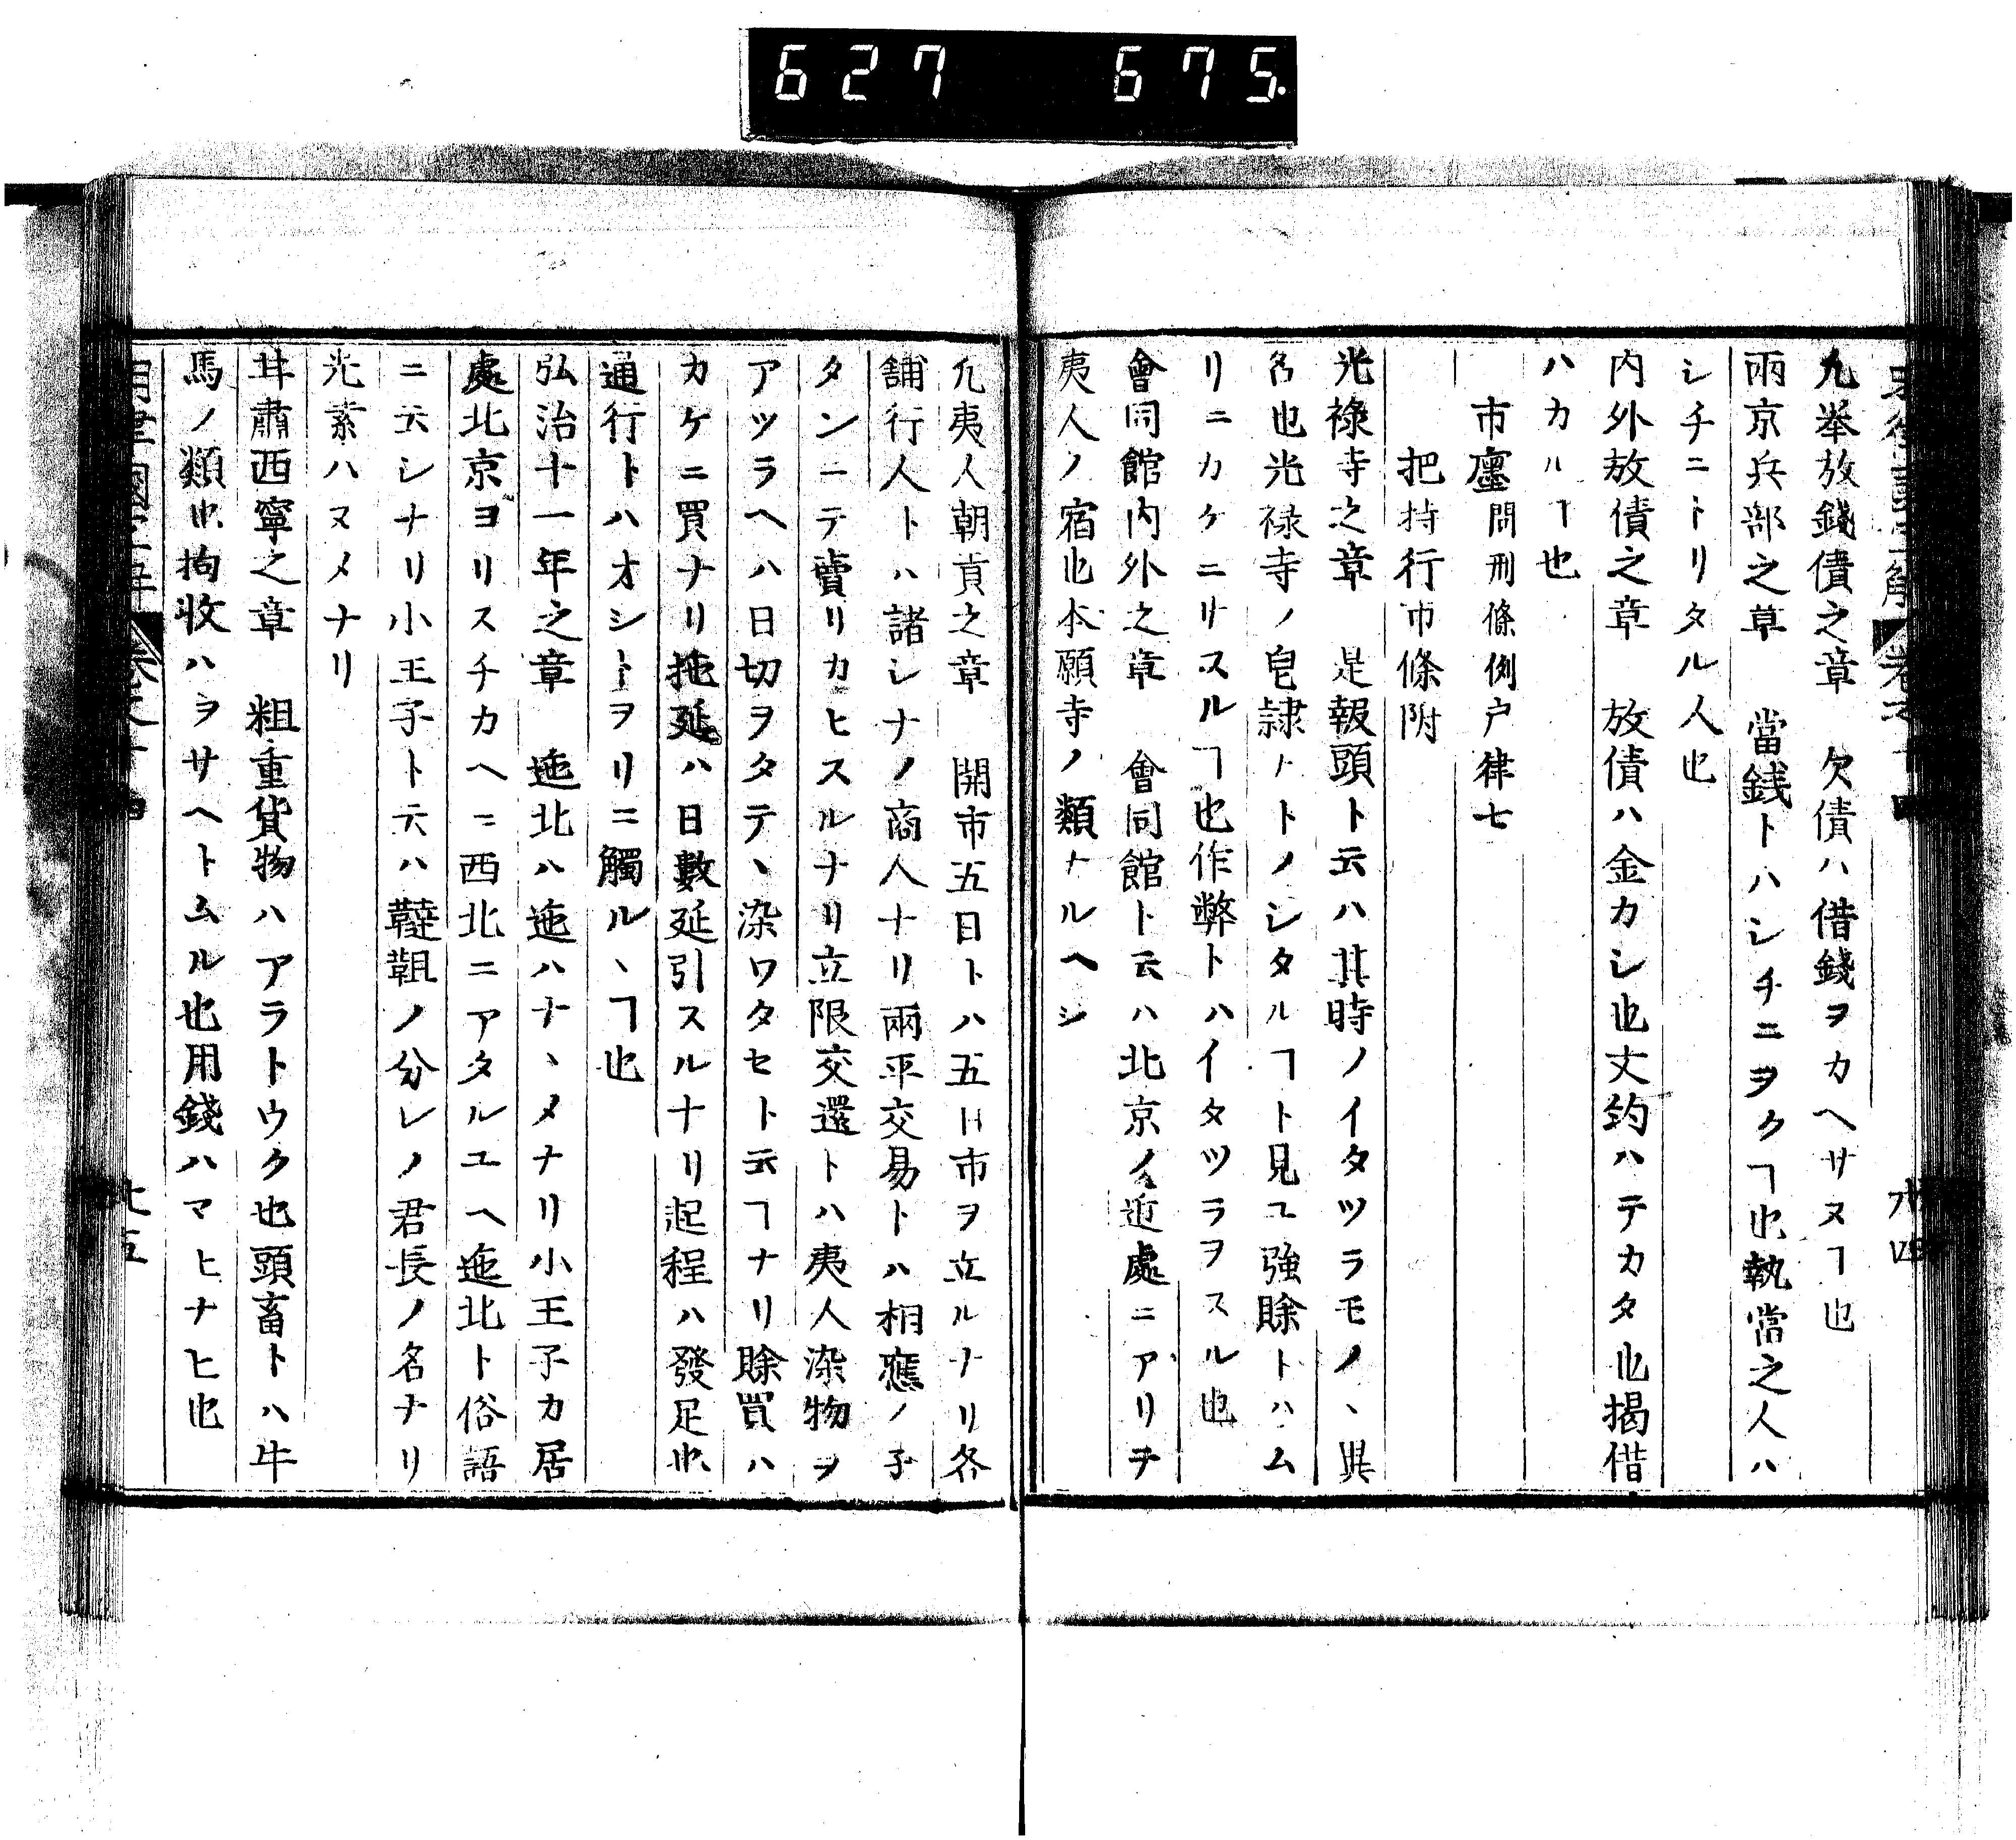 627 675.
凢挙放錢債之章　欠債ハ借錢ヲカヘサヌヿ也
兩京兵部之章　當銭トハシチニヲクヿ也執當之人ハ
シチニトリタル人也
内外放債之章　放債ハ金カシ也文約ハテカタ也揭借
ハカルヿ也
市廛問刑條例户律七
把持行市條附
光禄寺之章　是報頭ト云ハ其時ノイタツラモノヽ異
名也光禄寺ノ皂隷トトノシタルヿト見ユ強賒トハム
リニカケニリスルヿ也作弊トハイタツラヲスル也
會同館内外之章　會同館ト云ハ北京ノ近處ニアリテ
夷人ノ宿也本願寺ノ類ナルヘシ
凢夷人朝貢之章　開市五日トハ五日市ヲ立ルナリ各
舗行人トハ諸シナノ商人ナリ兩平交易トハ相應ノ子
タンニテ賣リカヒスルナリ立限交還トハ夷人染物ヲ
アツラヘハ日切ヲタテヽ染ワタセト云ヿナリ賒買ハ
カケニ買ナリ拖延ハ日數延引スルナリ起程ハ發足也
通行トハオシトヲリニ觸ルヽヿ也
弘治十一年之章　迤北ハ迤ハナヽメナリ小王子カ居
處北京ヨリスチカヘニ西北ニアタルユヘ迤北ト俗語
ニ云シナリ小王子ト云ハ韃靼ノ分レノ君長ノ名ナリ
光素ハヌメナリ
甘肅西寧之章　粗重貨物ハアラトウク也頭畜トハ牛
馬ノ類也拘收ハヲサヘトムル也用錢ハマヒナヒ也